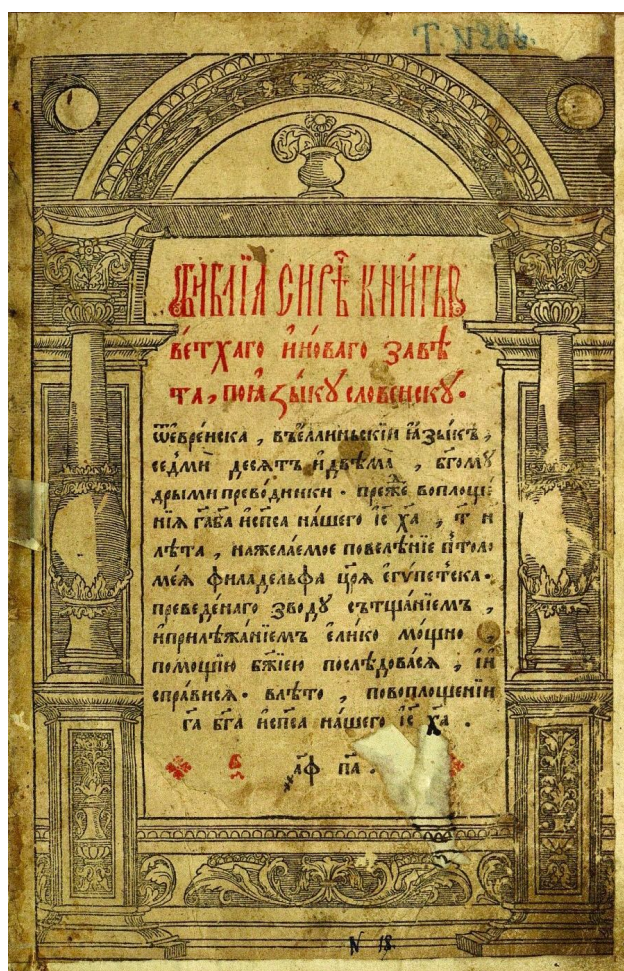 Т. N 268.
БИБЛЇА СИРѢ́Ч КНИ́ГЫ
ве́тхаго и҆но́ваго завѣ́
та, поꙗ҆зы́кꙋ слове́нскꙋ.
ѿе҆вре́йска, въе҆́ллиньскїй ꙗ҆зы́къ,
се́дмь деся́тъ и҆двѣма̀, бг҃омꙋ́
дрыми преводники. пре́жⷣе воплоще́
нїя га҃ба҃ и҆сп҃са на́шего і҆с҃ ха҃, т҃ и҆
лѣ́та, нажела́емое повелѣ́нїе пⷮтоло
ме́я филаде́льфа цр҃я є҆гѵ́петска.
преведе́наго зводꙋ сътща́нїемъ,
и҆прилѣжа́нїемъ є҆ли́ко мо́щно,
помощїю бж҃їею послѣ́довася, и҆и
спра́вися. влѣ́то, повоплоще́нїи
га҃ бг҃а и҆сп҃са на́шего і҆с҃ ха҃.
҂аф҃ па҃.
N 18.